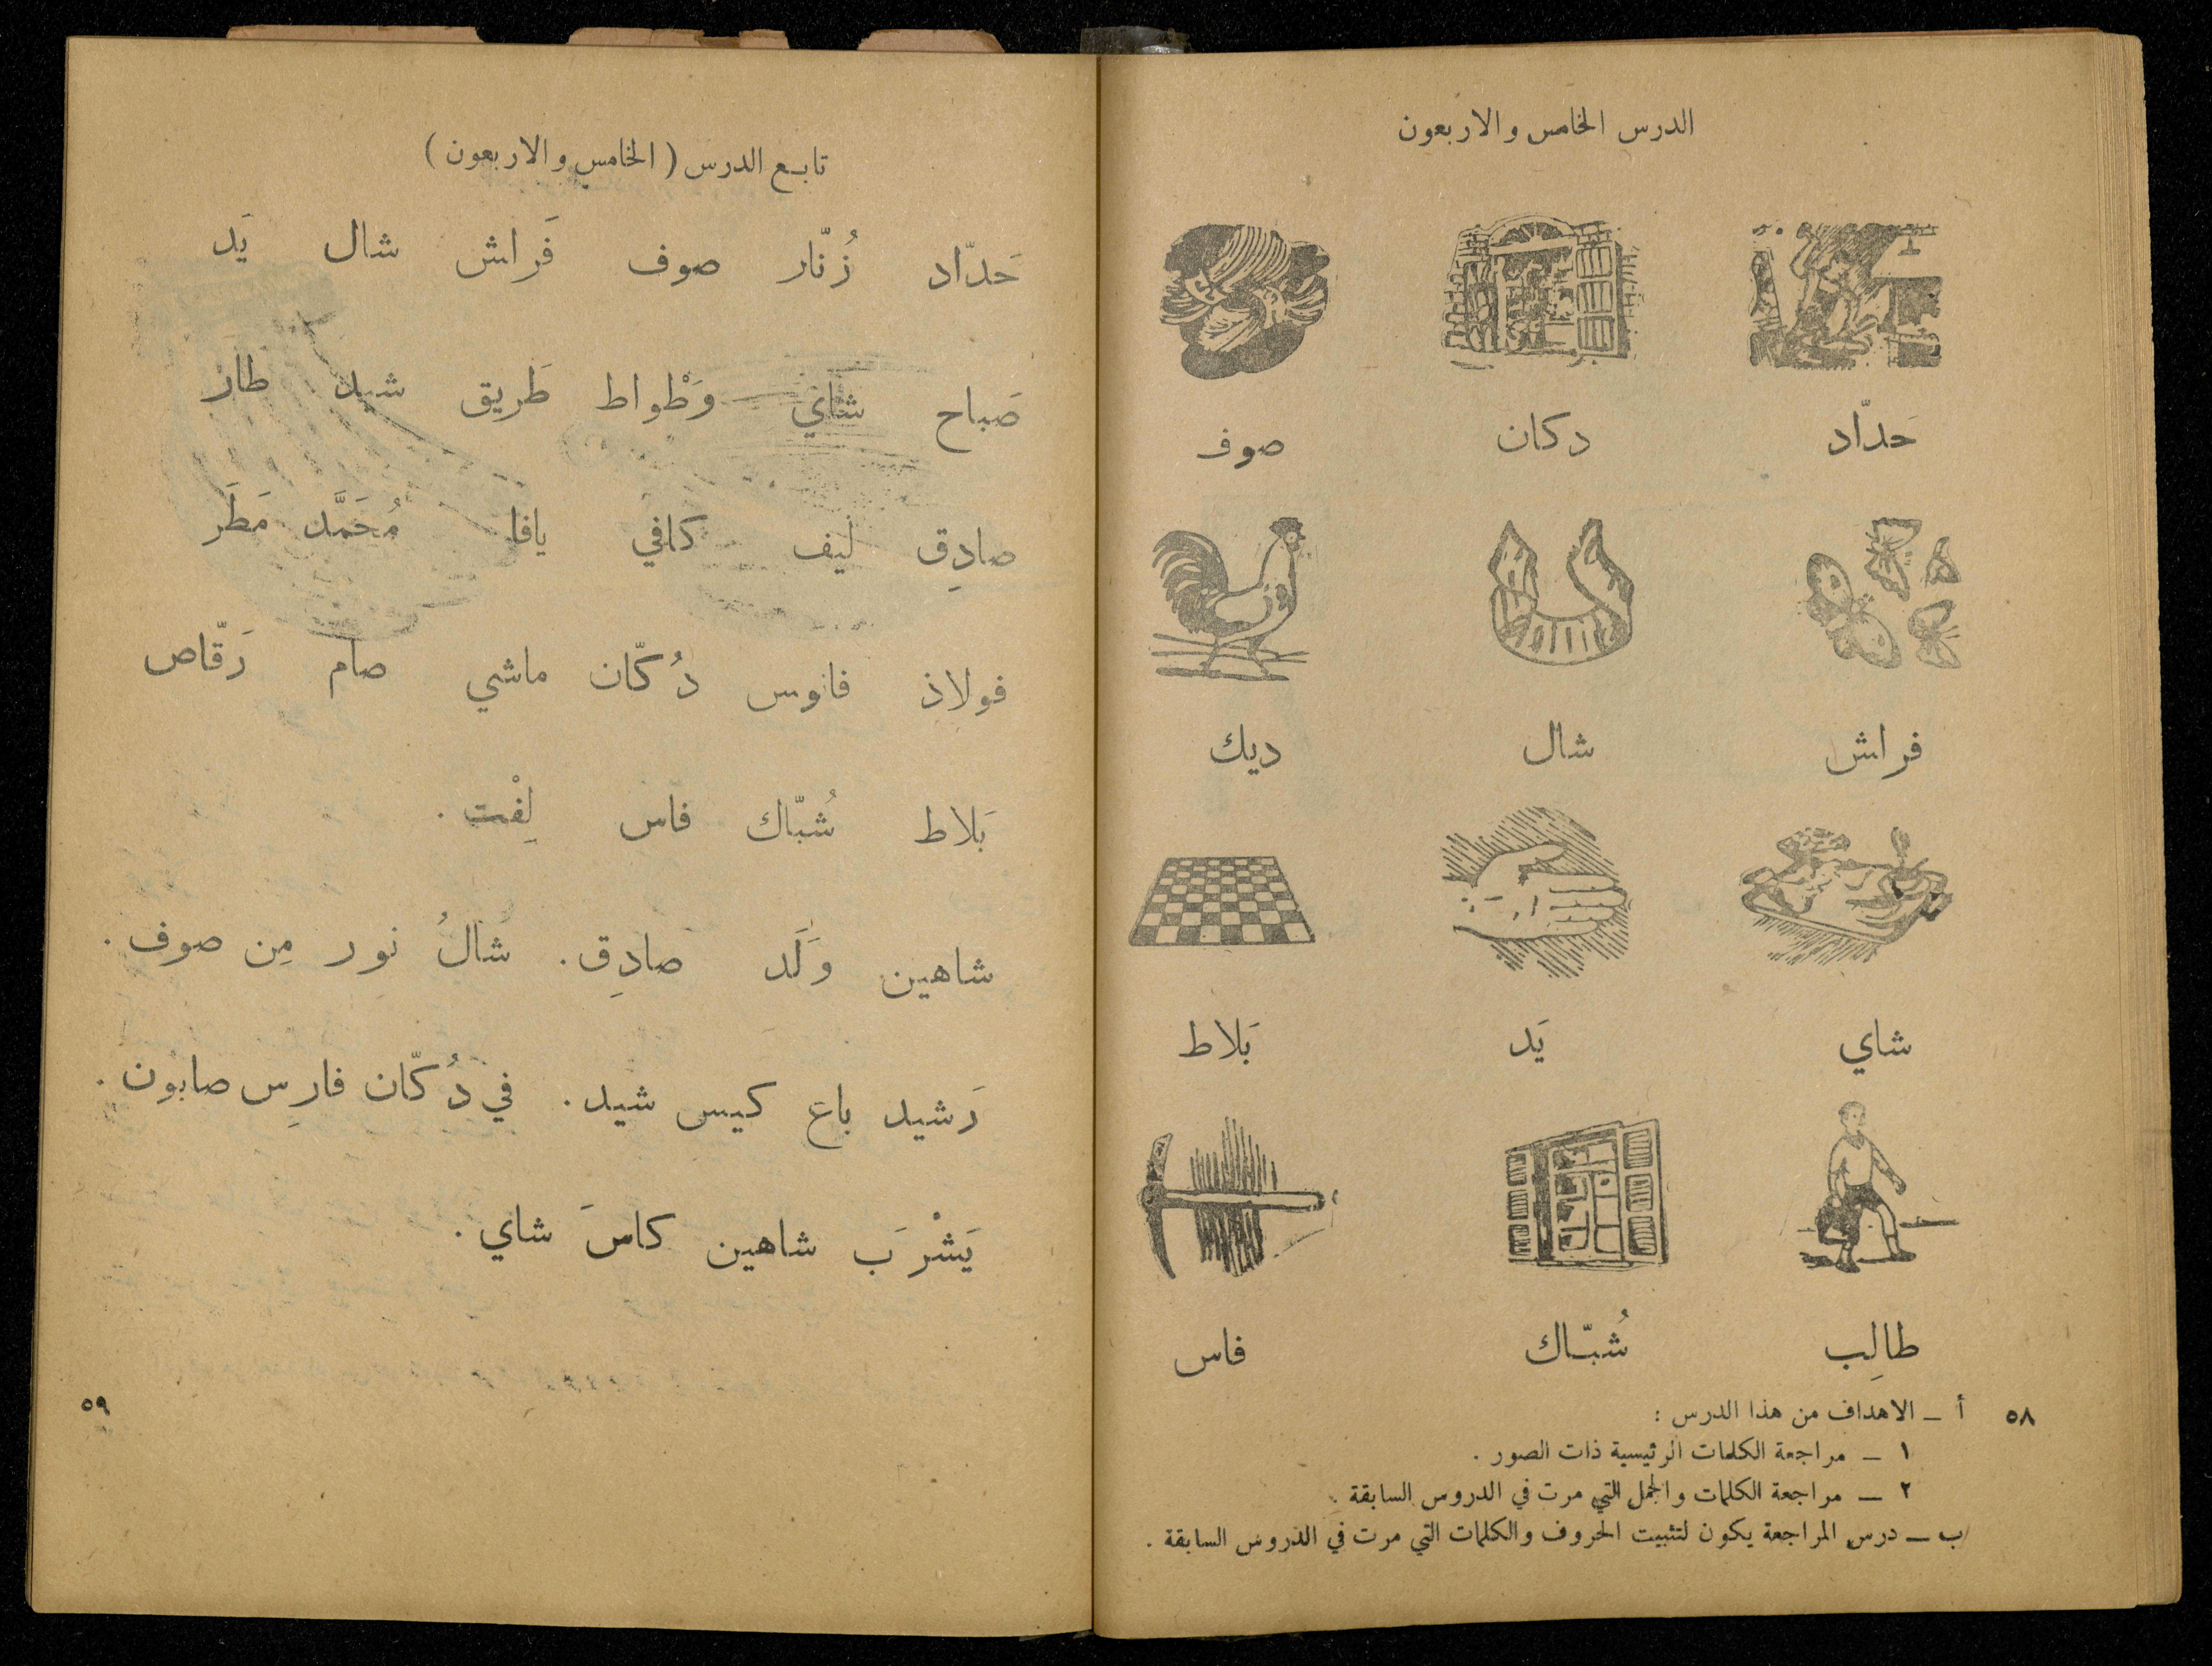 الدرس الخامس والاربعون
حَدّاد دكان صوف
فراش شال ديك
شاي يَد بَلاط
طالِب شُبّاك فاس
٥٨
أ ـ الاهداف من هذا الدرس :
١ ـ مراجعة الكلمات الرئيسية ذات الصور .
٢ ـ مراجعة الكلمات والجمل التي مرت في الدروس السابقة .
ب ـ درس المراجعة يكون لتثبيت الحروف والكلمات التي مرت في الدروس السابقة .
تابع الدرس ( الخامس والاربعون )
حَدّاد زُنّار صوف فَراش شال يَد
صَباح شاي وَطْواط طَريق شيد طار
صادِق ليف كافي يافا مُحَمَّد مَطَر
فولاذ فانوس دُكّان ماشي صام رَقّاص
بَلاط شُبّاك فاس لِفْت .
شاهين وَلَد صادِق . شالُ نور مِن صوف .
رَشيد باع كيس شيد . في دُكّان فارِس صابون .
يَشْرَب شاهين كاسَ شاي .
٥٩